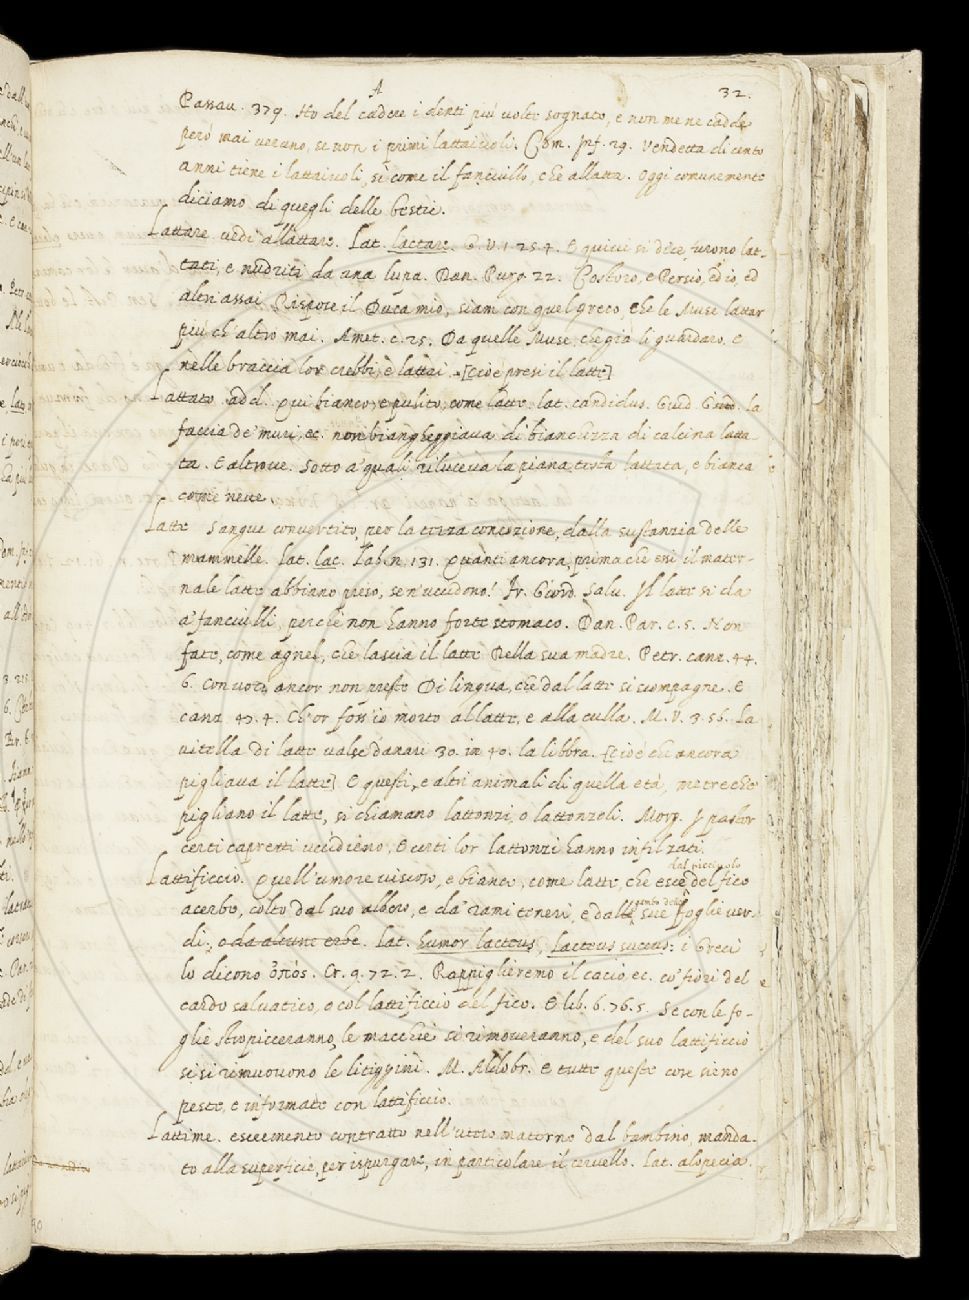 A 32.
Passau. 379. Ho del cadere i denti piú volte sognato, e non me ne cadde
peró mai veruno, se non i primi lattaiuoli. Com. Inf. 29. Vendetta di cento
anni tiene i lattaiuoli, sí come il fanciullo, che allatta. Oggi comunemente
diciamo di quegli delle bestie.
Lattare vedi allattare. Lat. lactare. G. V. 1. 25. 4. E quivi si dice furono lat-
tati, e nudriti da una lupa. Dan. Purg. 22. Costoro, e Persio, ed io, ed
altri assai Rispose il Duca mio, siam con quel greco, che le Muse lattar
piú ch'altro mai. Amet. c. 25. Da quelle Muse, che giá li guardaro, e
nelle braccia lor crebbi, e lattai. [cioè presi il latte]
Lattato add. piú bianco, e pulito, come latte. lat. candidus. Guid. Giud. la
faccia de' muri, ec. non biancheggiava di bianchezza di calcina latta
ta. E altrove. Sotto a' quali riluceva la piana testa lattata, e bianca
come neve.
Latte Sangue convertito, per la terza concozione, dalla sustanzia delle
mammelle. Lat. lac. Lab. n. 131. Quanti ancora, prima che essi il mater-
nale latte abbiano preso, se n'uccidono! Fr. Giord. Salv. Il latte si da
a' fanciulli, perchè non hanno forte stomaco. Dan. Par. c. 5. Non
fate, come agnel, che lascia il latte Della sua madre. Petr. canz. 44.
6. Con voce ancor non preste Di lingua, che dal latte si scompagne. E
canz. 47. 4. Ch'or foss'io morto al latte, e alla culla. M. V. 3. 56. La
vitella di latte valse danari 30. in 40. la libbra. [cioè che ancora
pigliava il latte] E questi, e altri animali di quella etá, metre che
pigliano il latte, si chiamano lattonzi, o lattonzoli. Morg. I pastor
certi capretti uccidieno, E certi lor lattonzi hanno infilzati.
dal picciuolo
Lattificcio. Quell'umore viscoso, e bianco, come latte, che esce del fico
gambo delle
acerbo, colto dal suo albero, e da' rami teneri, e dalle sue foglie ver-
di, o da alcune erbe. Lat. humor lacteus, lacteus succus: i Greci
lo dicono ὀπός. Cr. 9. 72. 2. Rappiglieremo il cacio, ec. co' fiori del
cardo salvatico, o col lattificcio del fico. E lib. 6. 76. 5. Se con le fo-
glie stropicceranno, le macchie si rimoveranno, e del suo lattificcio
si si rimuovono le litiggini. M. Aldobr. E tutte queste cose sieno
peste, e informate con lattificcio.
Lattime. escremento contratto nell'utero materno dal bambino, manda-
to alla superficie, per ispurgare, in particolare il cervello. Lat. alopecia.